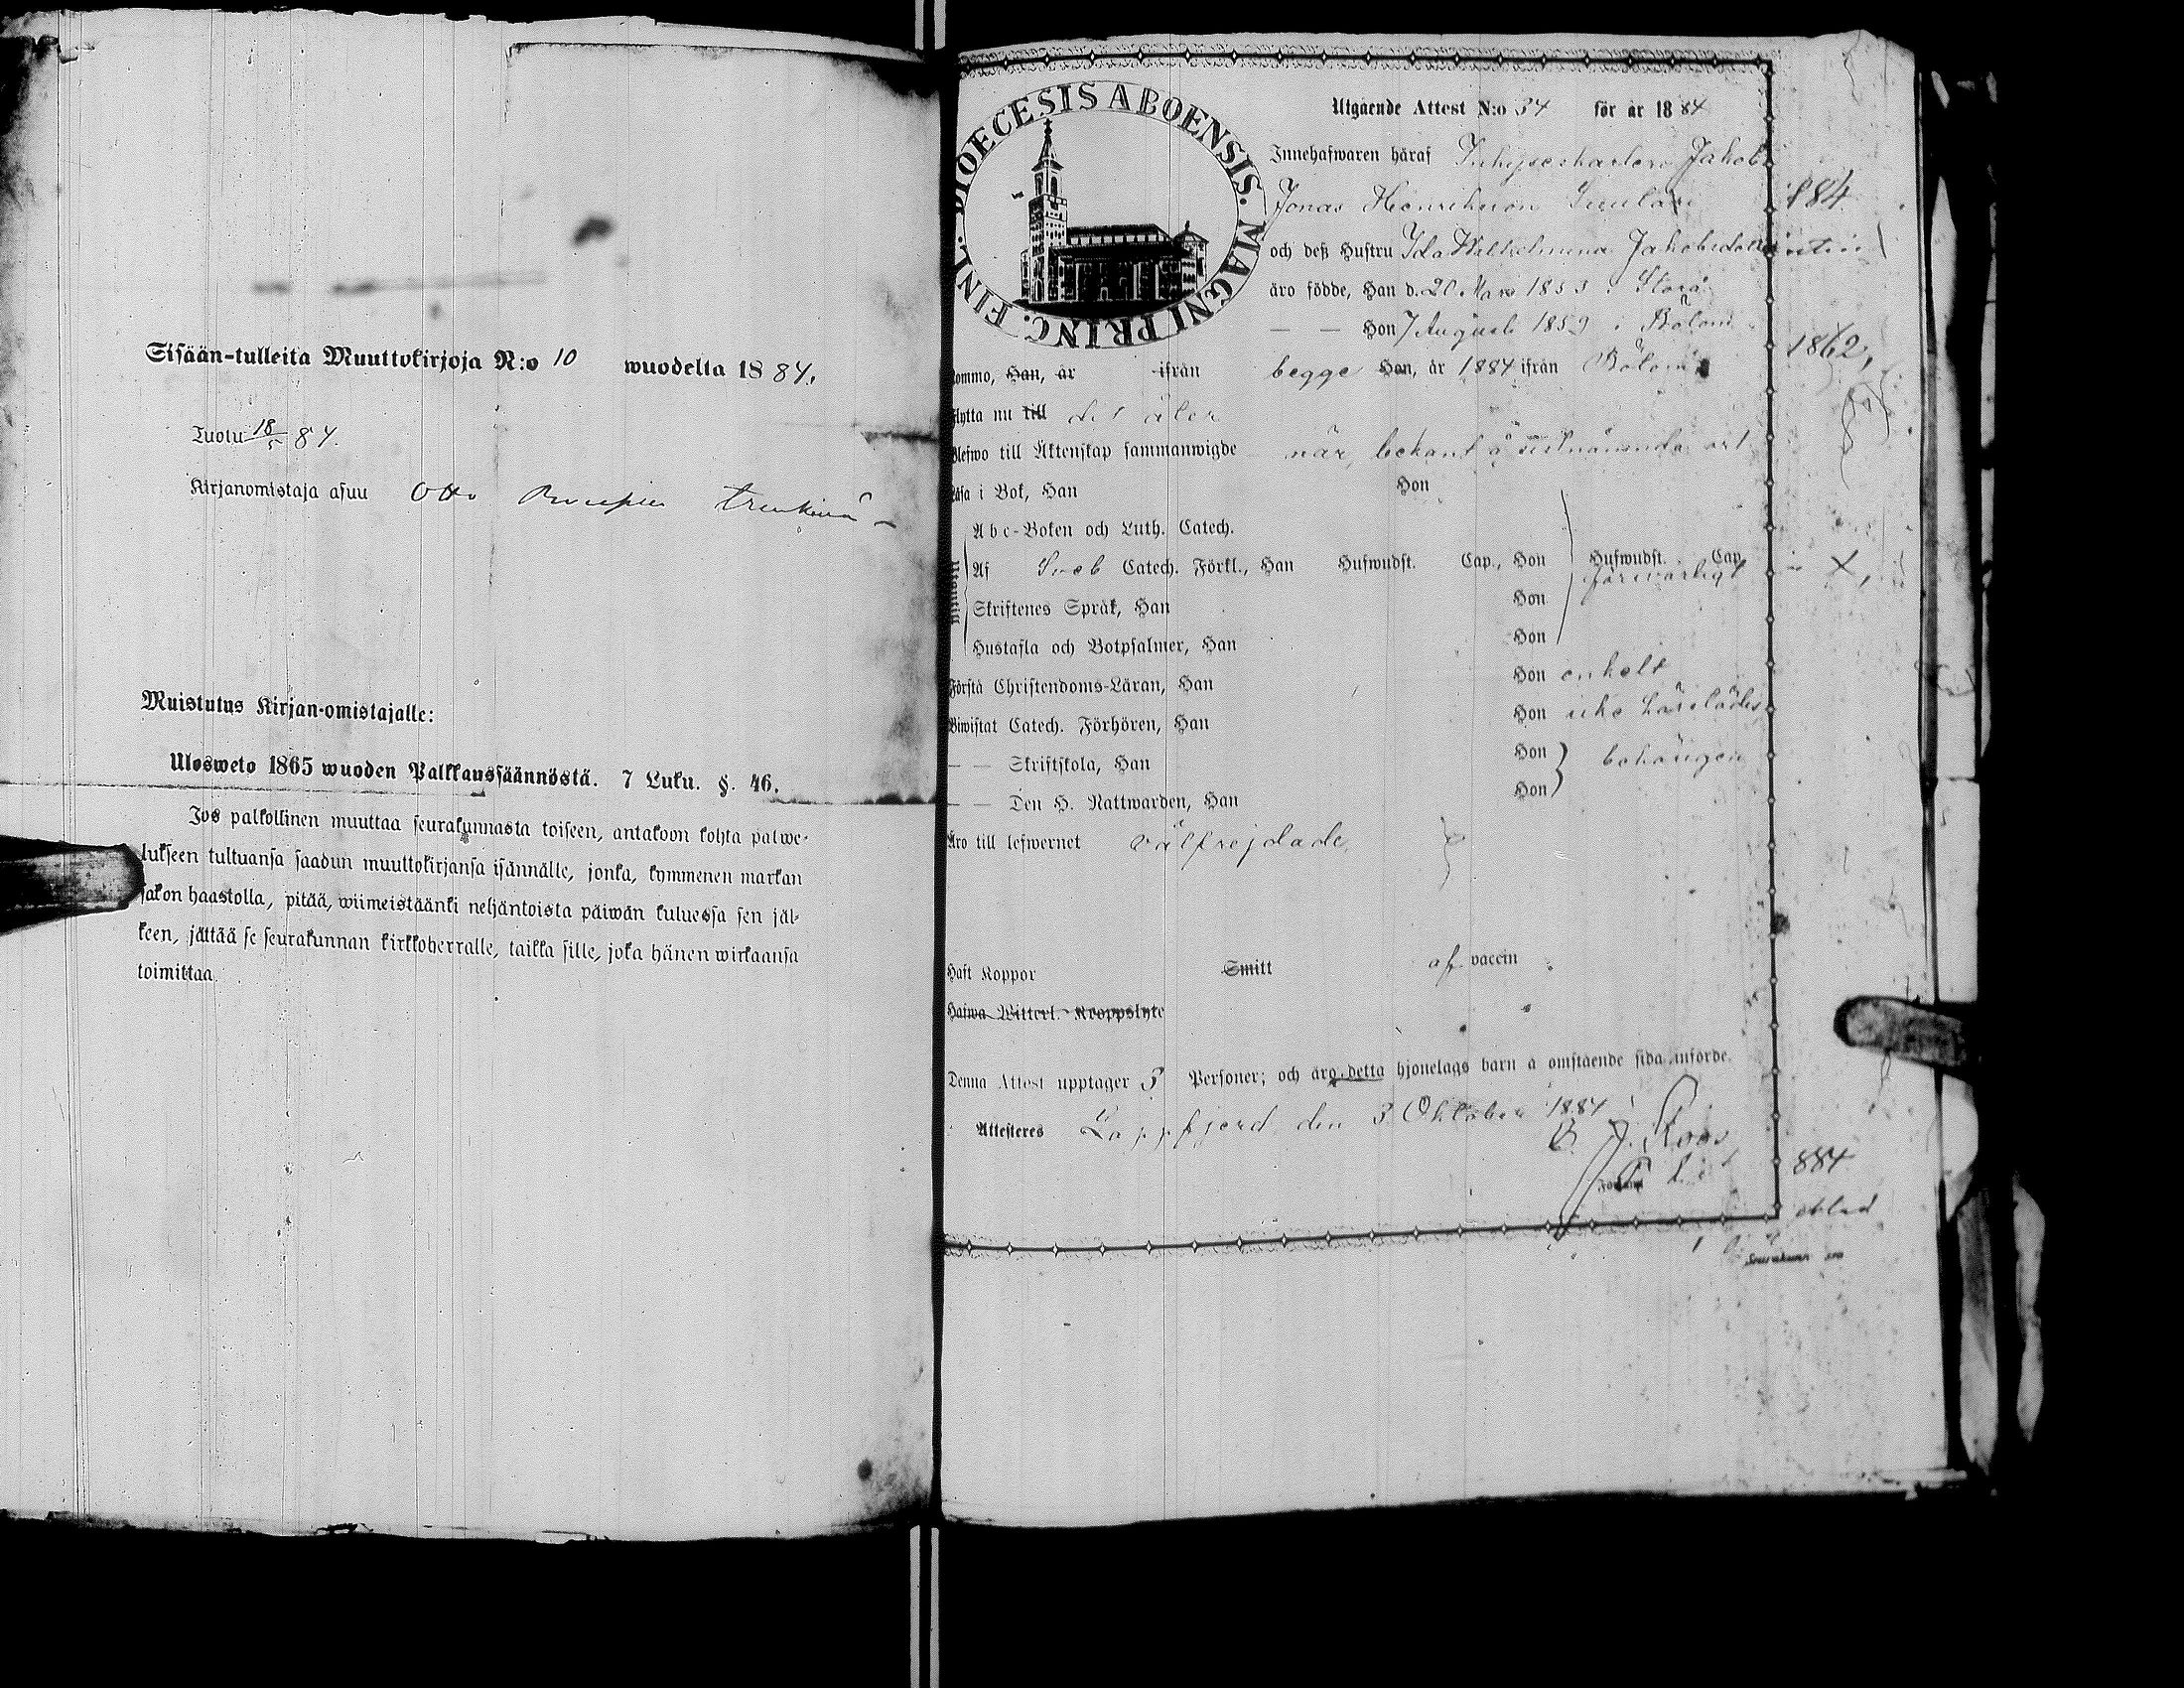 Sisään-tulleita Muuttokirjoja N:o 10 wuodelta 1884.
Tuotu 18/5 84.
Kirjanomistaja asuu Otto
Muistutus Kirjan-omistajalle:
Ulosweto 1865 wuoden Palkkaussäännöstä. 7 Luku. §. 46.
Jos palkollinen muuttaa seurakunnasta toiseen, antakoon kohta palwe-
lukseen tultuansa saadun muuttokirjansa isännälle, jonka, kymmenen markan
sakon haastolla, pitää, wiimeistäänki neljäntoista päiwän kuluessa sen jäl-
keen, jättää se seurakunnan kirkkoherralle, taikka sille, joka hänen wirkaansa
toimittaa.
DIOECESIS ABOENSIS. MAGNI PRINC. FINL.
Utgående Attest N:o 34 för år 1884
Innehafwaren häraf Inhyseskarlen Jakob
Jonas Henriksson
och deß Hustru Ida Wilhelmina Jakobsdotter
äro födde, Han d. 20 Mars 1853 i Storå
— — Hon 7 Augusti 1859 i Bötom
kommo, Han, år ifrån begge Hon, år 1884 ifrån Bötom
Flytta nu till dit åter
Blefwo till Äktenskap sammanwigde när, bekant å sistnämnda ort
Läsa i Bok, Han Hon
Abc-Boken och Luth. Catech.
Af Sveb Catech. Förkl., Han Hufwudst. Cap., Hon Hufwudst. Cap.
försvarligt
Skriftenes Språk, Han Hon
Hustafla och Botpsalmer, Han Hon
Förstå Christendoms-Läran, Han Hon enkelt
Biwistat Catech. Förhören, Han Hon icke härstädes
— — Skriftskola, Han Hon behörigen
— — Den H. Nattwarden, Han Hon
Äro till lefwernet välfrejdade
Haft Koppor Smitt af vaccin
Hafwa Witterl. Kroppslyte
Denna Attest upptager 3 Personer; och äro detta hjonelags barn å omstående sida införde.
Attesteres Lappfjerd den 3 Oktober 1884
Roos
884
1862,
884